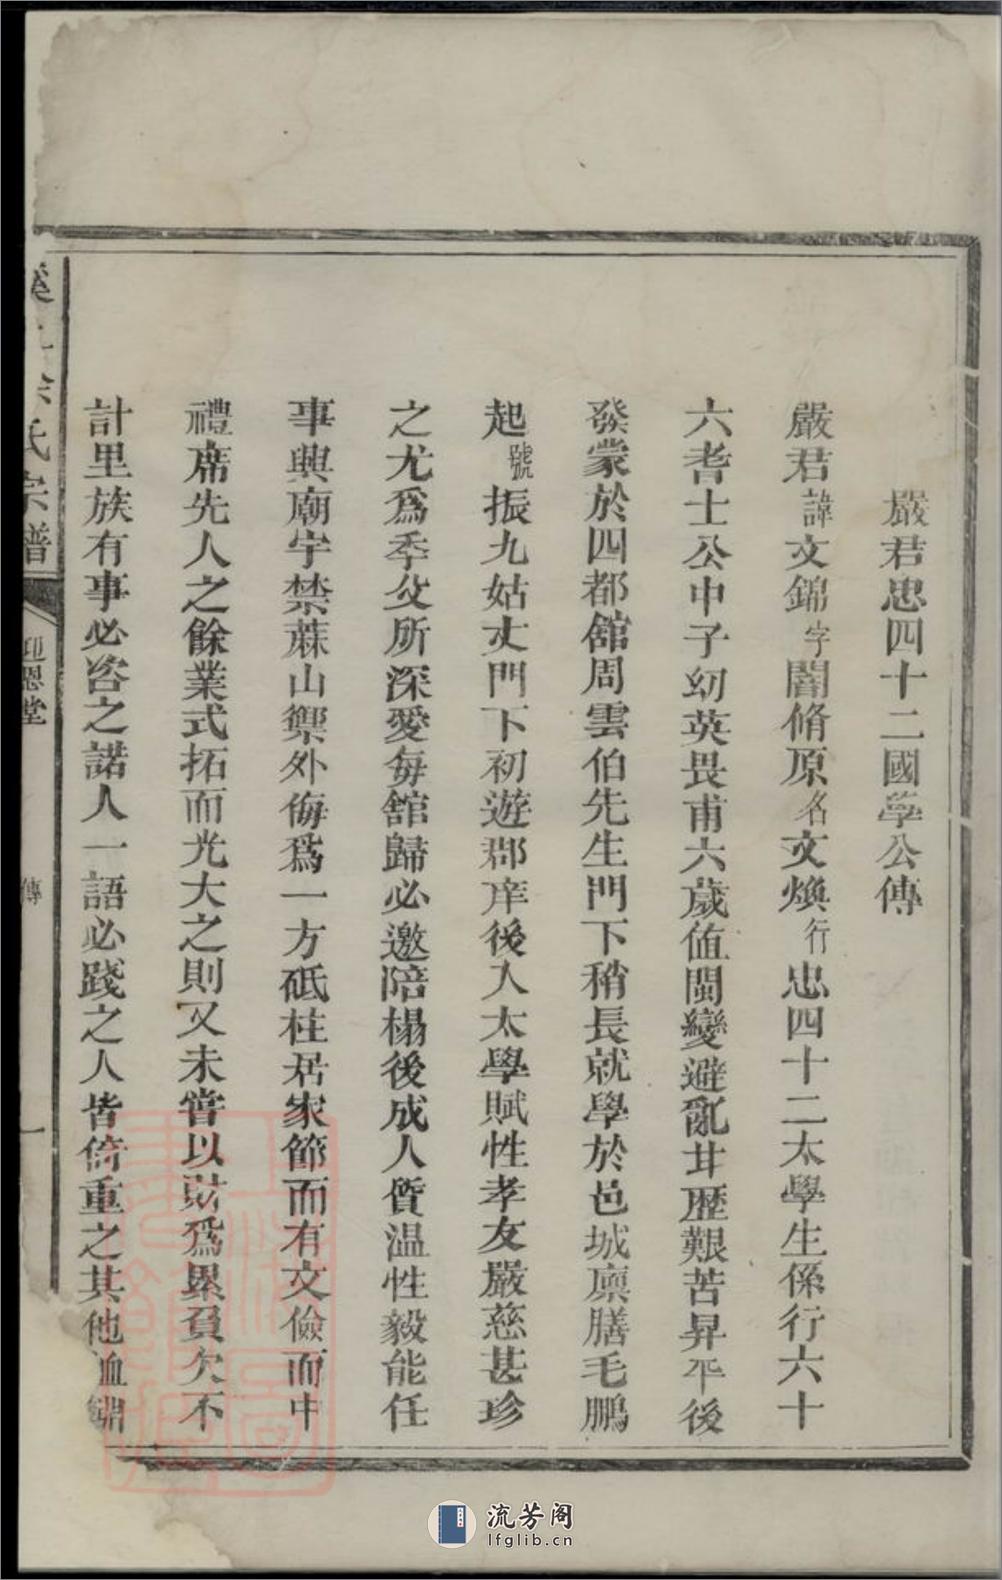 嚴君忠四十二國學公傳
嚴君諱文錦字闇脩原名文煥行忠四十二太學生係行六十
六耆士公中子幼英畏甫六歲值閩變避亂廿歷艱苦昇平後
發蒙於四都舘周雲伯先生門下稍長就學於邑城廪膳毛鵬
起號振九姑丈門下初遊郡庠後入太學賦性孝友嚴慈甚珍
之尤爲季父所深愛每舘歸必邀陪榻後成人質温性毅能任
事興廟宇禁蔴山禦外侮爲一方砥柱居家節而有文儉而中
禮席先人之餘業式拓而光大之則又未嘗以財爲累負欠不
計里族有事必咨之諾人一語必踐之人皆倚重之其他恤
氏宗譜
迎恩堂
傳
一
流芳阁
lfglib.cn